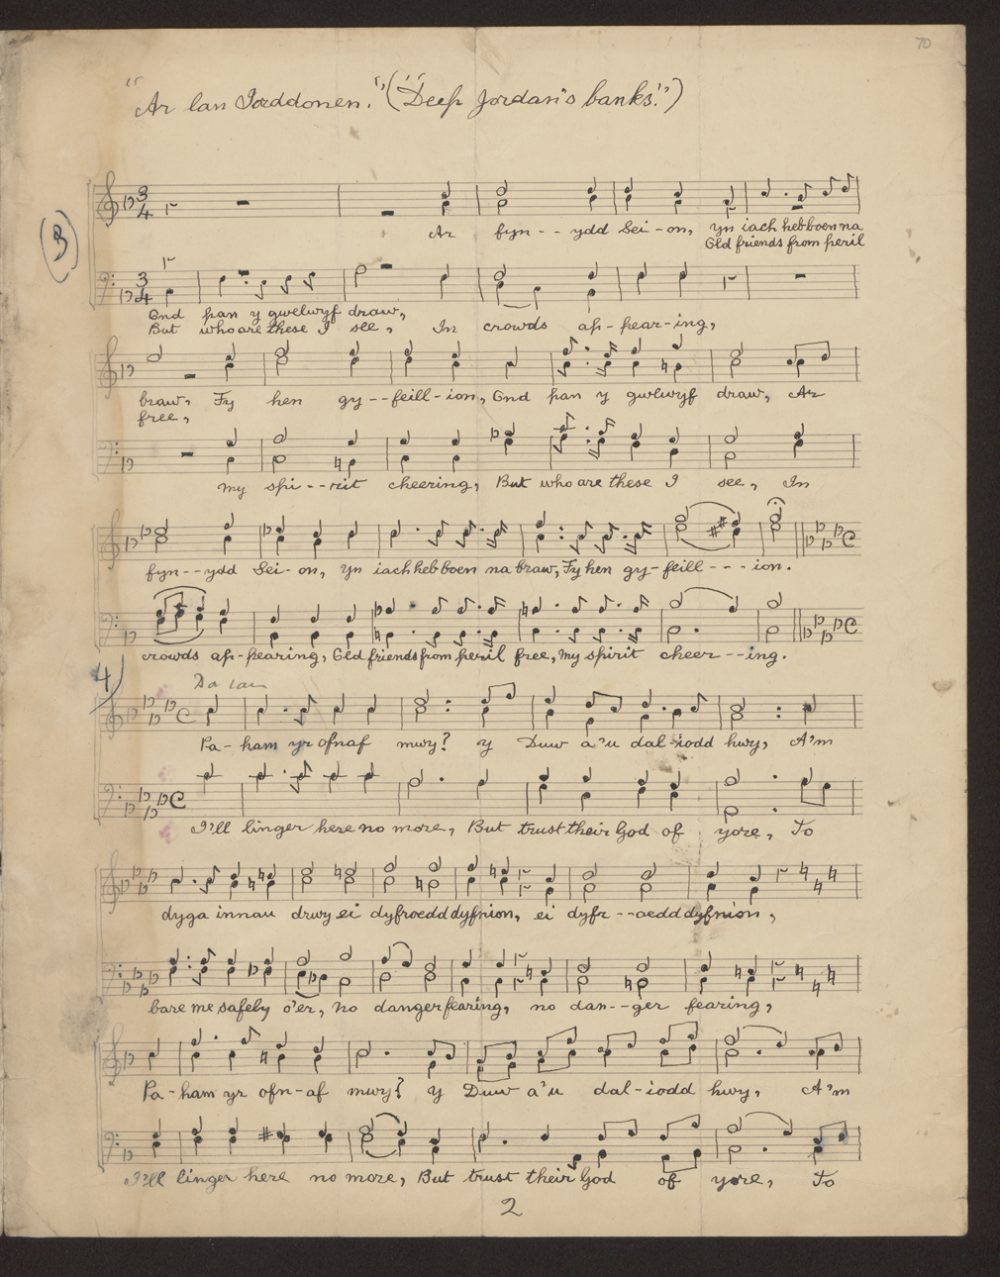 70
"Ar lan Iorddonen." ("Deep Jordan's banks.")
3
Ar fyn - - ydd Sei - on, yn iach heb boen na
Old friends from peril
Ond pan y gwelwyf draw,
But who are these I see, In crowds ap - pear - ing,
braw, Fy hen gy - - feill - ion, Ond pan y gwelwyf draw, Ar
free,
My spi - - rit cheering, But who are these I see, In
fyn - - ydd Sei - on, yn iach heb boen na braw, Fy hen gy - feill - - - ion.
crowds ap - pearing, Old friends from peril free, My spirit cheer - - ing.
4
Pa - ham yr ofnaf mwy? y Duw a'u dal - iodd hwy, A'm
I'll linger here no more, But trust their God of yore, To
dyga innau drwy ei dyfroedd dyfnion, ei dyfr - - oedd dyfnion,
bare me safely o'er, no danger fearing, no dan - - ger fearing,
Pa - ham yr ofn - af mwy? y Duw a'u dal - iodd hwy, A'm
I'll linger here no more, But trust their God of yore, To
2